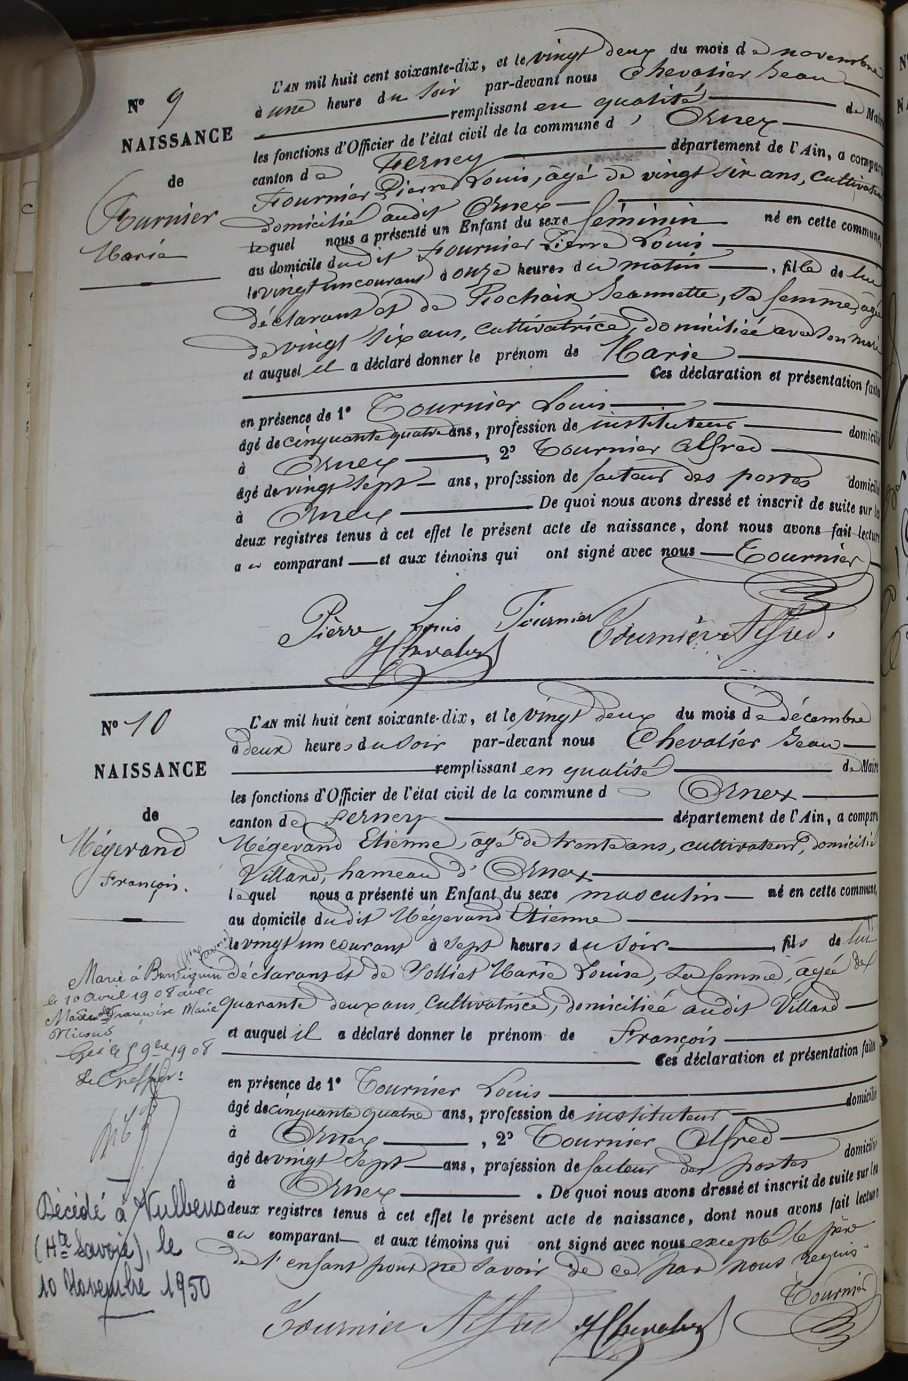 N° 9
NAISSANCE
de
Fournier
Marie
L'AN mil huit cent soixante-dix, et le vingt deux du mois de novembre
à une heure du soir par-devant nous Chevalier Jean
remplissant en qualité de Maire
les fonctions d'Officier de l'état civil de la commune d' Ornex
canton de Ferney département de l'Ain, a comparu
Fournier Pierre Louis, âgé de vingt six ans, cultivateur
domicilié audit Ornex
lequel nous a présenté un Enfant du sexe féminin né en cette commune,
au domicile dudit Fournier Pierre Louis
le vingt un courant à onze heures du matin, fille de lui
déclarant et de Rochaix Jeannette, sa femme, âgée
de vingt six ans, cultivatrice, domiciliée avec son mari
et auquel il a déclaré donner le prénom de Marie
Ces déclaration et présentation faites
en présence de 1° Tournier Louis
âgé de cinquante quatre ans, profession de instituteur domicilié
à Ornex, 2° Tournier Alfred
âgé de vingt sept ans, profession de facteur des postes domicilié
à Ornex De quoi nous avons dressé et inscrit de suite sur les
deux registres tenus à cet effet le présent acte de naissance, dont nous avons fait lecture
au comparant et aux témoins qui ont signé avec nous Tournier
Pierre Louis Fournier Tournier Alfred
J Chevalier
N° 10
NAISSANCE
de
Mégevand
François.
L'AN mil huit cent soixante-dix, et le vingt deux du mois de décembre
à deux heures du soir par-devant nous Chevalier Jean
remplissant en qualité de Maire
les fonctions d'Officier de l'état civil de la commune d Ornex
canton de Ferney département de l'Ain, a comparu
Mégevand Etienne, âgé de trente ans, cultivateur, domicilié
Villard, hameau d'Ornex
lequel nous a présenté un Enfant du sexe masculin né en cette commune,
au domicile dudit Mégevand Etienne
le vingt un courant à sept heures du soir, fils de lui
déclarant et de Volliet Marie Louise, sa femme, âgée de
quarante deux ans, cultivatrice, domiciliée audit Villard
et auquel il a déclaré donner le prénom de François
Ces déclaration et présentation faites
en présence de 1° Tournier Louis
âgé de cinquante quatre ans, profession de instituteur domicilié
à Ornex, 2° Tournier Alfred
âgé de vingt sept ans, profession de facteur des postes domicilié
à Ornex. De quoi nous avons dressé et inscrit de suite sur les
deux registres tenus à cet effet le présent acte de naissance, dont nous avons fait lecture
au comparant et aux témoins qui ont signé avec nous excepté le père
de l'enfant pour ne savoir de ce par nous requis.
Tournier Alfred J Chevalier Tournier
Marié à
le 10 avril 1908 avec
Françoise Marie
le 5 9bre 1908
Le Greffier:
Décédé à Vulbens
(Hte Savoie), le
10 Novembre 1950